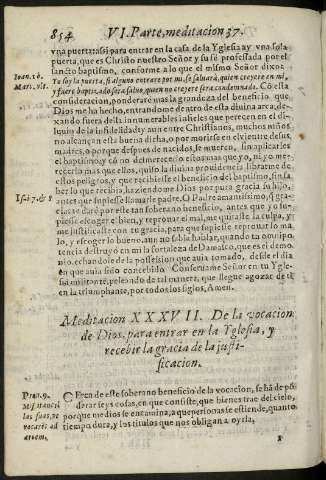 854 VI. Parte, meditacion 37.
vna puerta: assi para entrar en la casa de la Yglesia ay vna sola
puerta, que es Christo nuestro Señor y su fè professada por el
Ioan. 10. sancto baptismo, conforme a lo que el mismo Señor dixo:
Marc. vlt. Yo soy la puerta, si alguno entrare por mi, se saluarà, quien creyere en mi,
y fuere baptizado, serà saluo, quien no creyere serà condenado. Cõ esta
consideracion, ponderare mas la grandeza del beneficio que
Dios me ha hecho, entrandome dentro de esta diuina arca, de-
xando fuera della innumerables infieles que perecen en el di-
luuio de la infidelidad: y aun entre Christianos, muchos niños
no alcançan esta buena dicha, o por morirse en el vientre de sus
madres, o porque despues de nacidos, se mueren, sin aplicarles
el baptismo: y cõ no desmerecerlo estos mas que yo, ni yo mer-
recerlo mas que ellos, quiso la diuina prouidencia librarme de
estos peligros, y que recibiesse el beneficio del baptismo, sin sa-
ber lo que recibia, haziendome Dios por pura gracia su hijo,
Isai. 7. & 8 antes que supiesse llamarle padre. O Padre amantissimo, q̃ gra-
cias te darè por este tan soberano beneficio, antes que yo su-
piesse escoger el bien, y reprouar el mal, me quitaste la culpa, y
me justificaste con tu gracia, para que supiesse reprouar lo ma
lo, y escoger lo bueno, aun no sabia hablar, quando tu omnipo-
tencia destruyò en mi la fortaleza de Damasco, que es el demo
nio, echandole de la possession que auia tomado, desde el dia
en que auia sido concebido. Conseruame Señor en tu Ygle-
sia militante, peleando de tal manera, que llegue a gozar de ti
en la triumphante, por todos los siglos, Amen.
Meditacion XXXVII. De la vocacion
de Dios, para entrar en la Yglesia, y
recebir la gracia de la justi-
ficacion.
CErca de este soberano beneficio de la vocacion, se hà de põ
derar seys cosas, en que consiste, que bienes trae del cielo,
porque medios se encamina, a que personas se estiende, quanto
tiempo dura, y los titulos que nos obligan a oyrla,